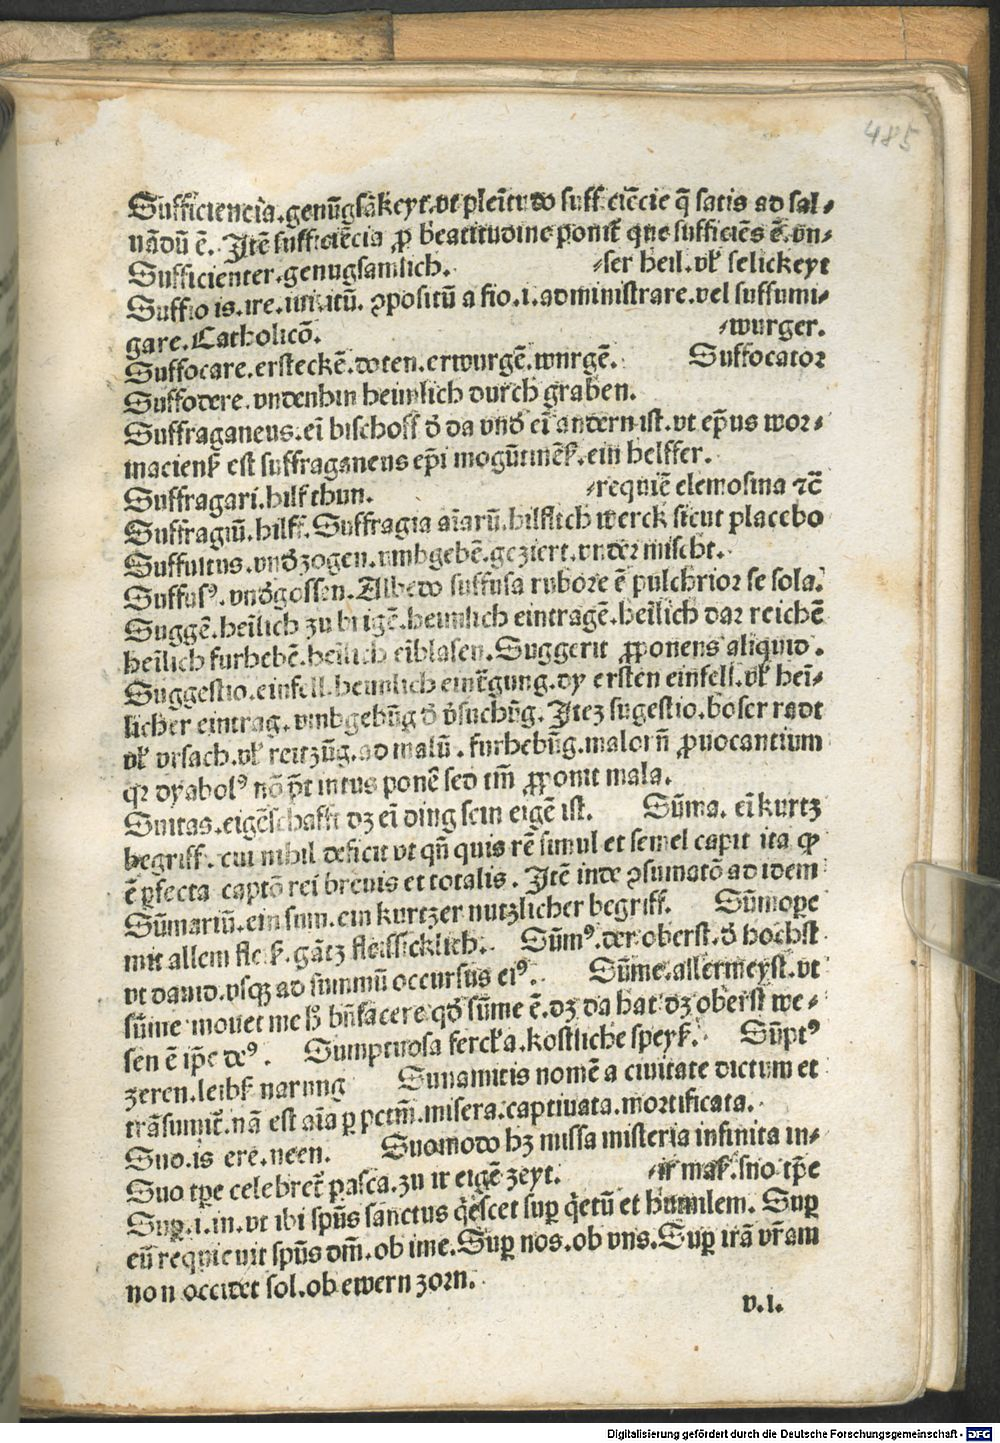 485
Sufficiencia.genūgsākeyt.vt pleītudo sufficiēcie q̄ satis ad sal⸗
uādū ē. Itē sufficiēcia ꝓ beatitudine ponit᷑ que sufficiēs ē.vn⸗
Sufficienter.genugsamlich. ⸗ser heil.vl᷑ selickeyt
Suffio is.ire.iui.itū. ꝯpositū a fio.i.administrare.vel suffumi⸗
gare.Catholicō. ⸗wurger.
Suffocare.ersteckē.doten.erwurgē.wurgē. Suffocator
Suffodere.vndenhin heimlich durch graben.
Suffraganeus.eī bischoff d̕ da vnd̕ eī andern ist.vt ep̄us wor⸗
macienẜ est suffraganeus ep̄i mogūtinēẜ.ein helffer.
Suffragari.hilf thun. ⸗requiē elemosina ⁊c̄
Suffragiū.hilff.Suffragia aīarū.hilflich werck sicut placebo
Suffultus.vnd̕zogen.vmbgebē.geziert.vnder mischt.
Suffusꝰ.vnd̕gossen.Albedo suffusa rubore ē pulchrior se sola.
Suggē.heīlich zu brigē.heimlich eintragē.heīlich dar reichē
heīlich furhebē.heīlich eīblasen.Suggerit ꝓponens aliquid.
Suggestio.einfell.heimlich eint̄gung.dy ersten einfell.vl᷑ heī⸗
licher eintrag.vmbgebūg d̕ v̕suchūg.Itez sugestio.boser radt
vl᷑ vrsach.vl᷑ reitzūg.ad malū.furhebūg.malorn̄ ꝓuocantium
qr dyabolꝰ nō p̄t intus ponē sed tm̄ ꝓponit mala.
Suitas.eigēschafft dz eī ding sein eigē ist. Sūma. eī kurtz
begriff.cui nihil deficit vt qn̄ quis rē simul et semel capit ita ꝙ
ē ꝑfecta captō rei breuis et totalis. Itē inde ꝯsumatō ad idem
Sūmariū.ein sum.ein kurtzer nutzlicher begriff. Sūmoꝑe
mit allem fleiẜ.gātz fleissicklich. Sūmꝰ.der oberst.d̕ hochst
vt dauid.vsqꝫ ad summū occursus eiꝰ. Sūme.allermeyst.vt
sūme mouet me h̕ bn̄facere qd̕ sūme ē.dz da hat dz oberst we⸗
sen ē ip̄e deꝰ. Sumptuosa fercl᷑a.kostliche speyẜ. Sūptꝰ
zeren.leibẜ narung Sunamitis nomē a ciuitate dictum et
trāsumit᷑.nā est aīa ꝑ pctm̄.misera.captiuata.mortificata.
Suo.is ere.neen. Suomodo hz missa misteria infinita in⸗
Suo tꝑe celebret᷑ pasca.zu ir eigē zeyt. ⸗ir maẜ.suo tꝑe
Suꝑ.i.in.vt ibi spūs sanctus q̇escet suꝑ q̇etū et humilem. Suꝑ
eū requieuit spūs dm̄.ob ime.Suꝑ nos.ob vns.Suꝑ irā vr̄am
non occidet sol.ob ewern zorn.
v.i.
Digitalisierung gefördert durch die Deutsche Forschungsgemeinschaft - DFG